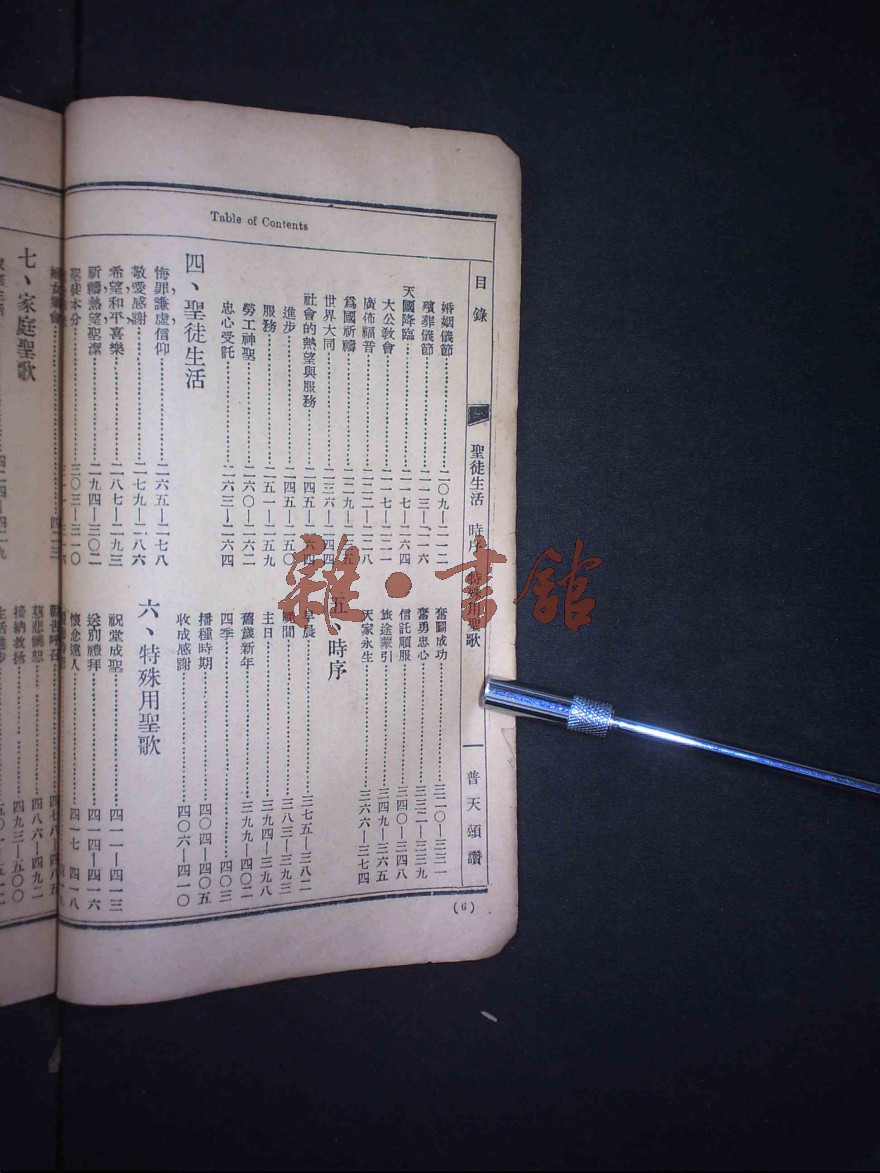 Table of Contents
目錄
聖徒生活　時序　特殊用聖歌
一　普天頌讚
(6)
婚姻儀節……二〇九—二一二
殯葬儀節……二一三—二一六
天國降臨……二一七—二六四
大公教會……二一七—二二一
廣佈福音……二二二—二二八
爲國祈禱……二二九—二三五
世界大同……二三六—二四四
社會的熱望與服務……二四五—二六四
進步……二四五—二五〇
服務……二五一—二五九
勞工神聖……二六〇—二六二
忠心受託……二六三—二六四
四、聖徒生活
悔罪謙虛信仰……二六五—二七八
敬愛感謝……二七九—二八六
希望和平喜樂……二八七—二九三
祈禱熱望聖潔……二九四—三〇二
聖徒本分……三〇三—三一〇
奮鬭成功……三二〇—三三一
奮勇忠心……三三二—三三九
信託順服……三四〇—三四八
旅途蒙引……三四九—三六五
天家永生……三六六—三七四
五、時序
早晨……三七五—三八二
晚間……三八三—三九三
主日……三九四—三九八
舊歲新年……三九九—四〇二
四季……四〇三
播種時期……四〇四—四〇五
收成感謝……四〇六—四一〇
六、特殊用聖歌
祝堂成聖……四一一—四一三
送別禮拜……四一四—四一六
懷念遠人……四一七—四一八
婦女集會……四二三
七、家庭聖歌
四二四—四二九
四七八—四八五
慈悲饒恕……四八六—四九二
接納救拯……四九三—五〇〇
生活進步
雜·書館